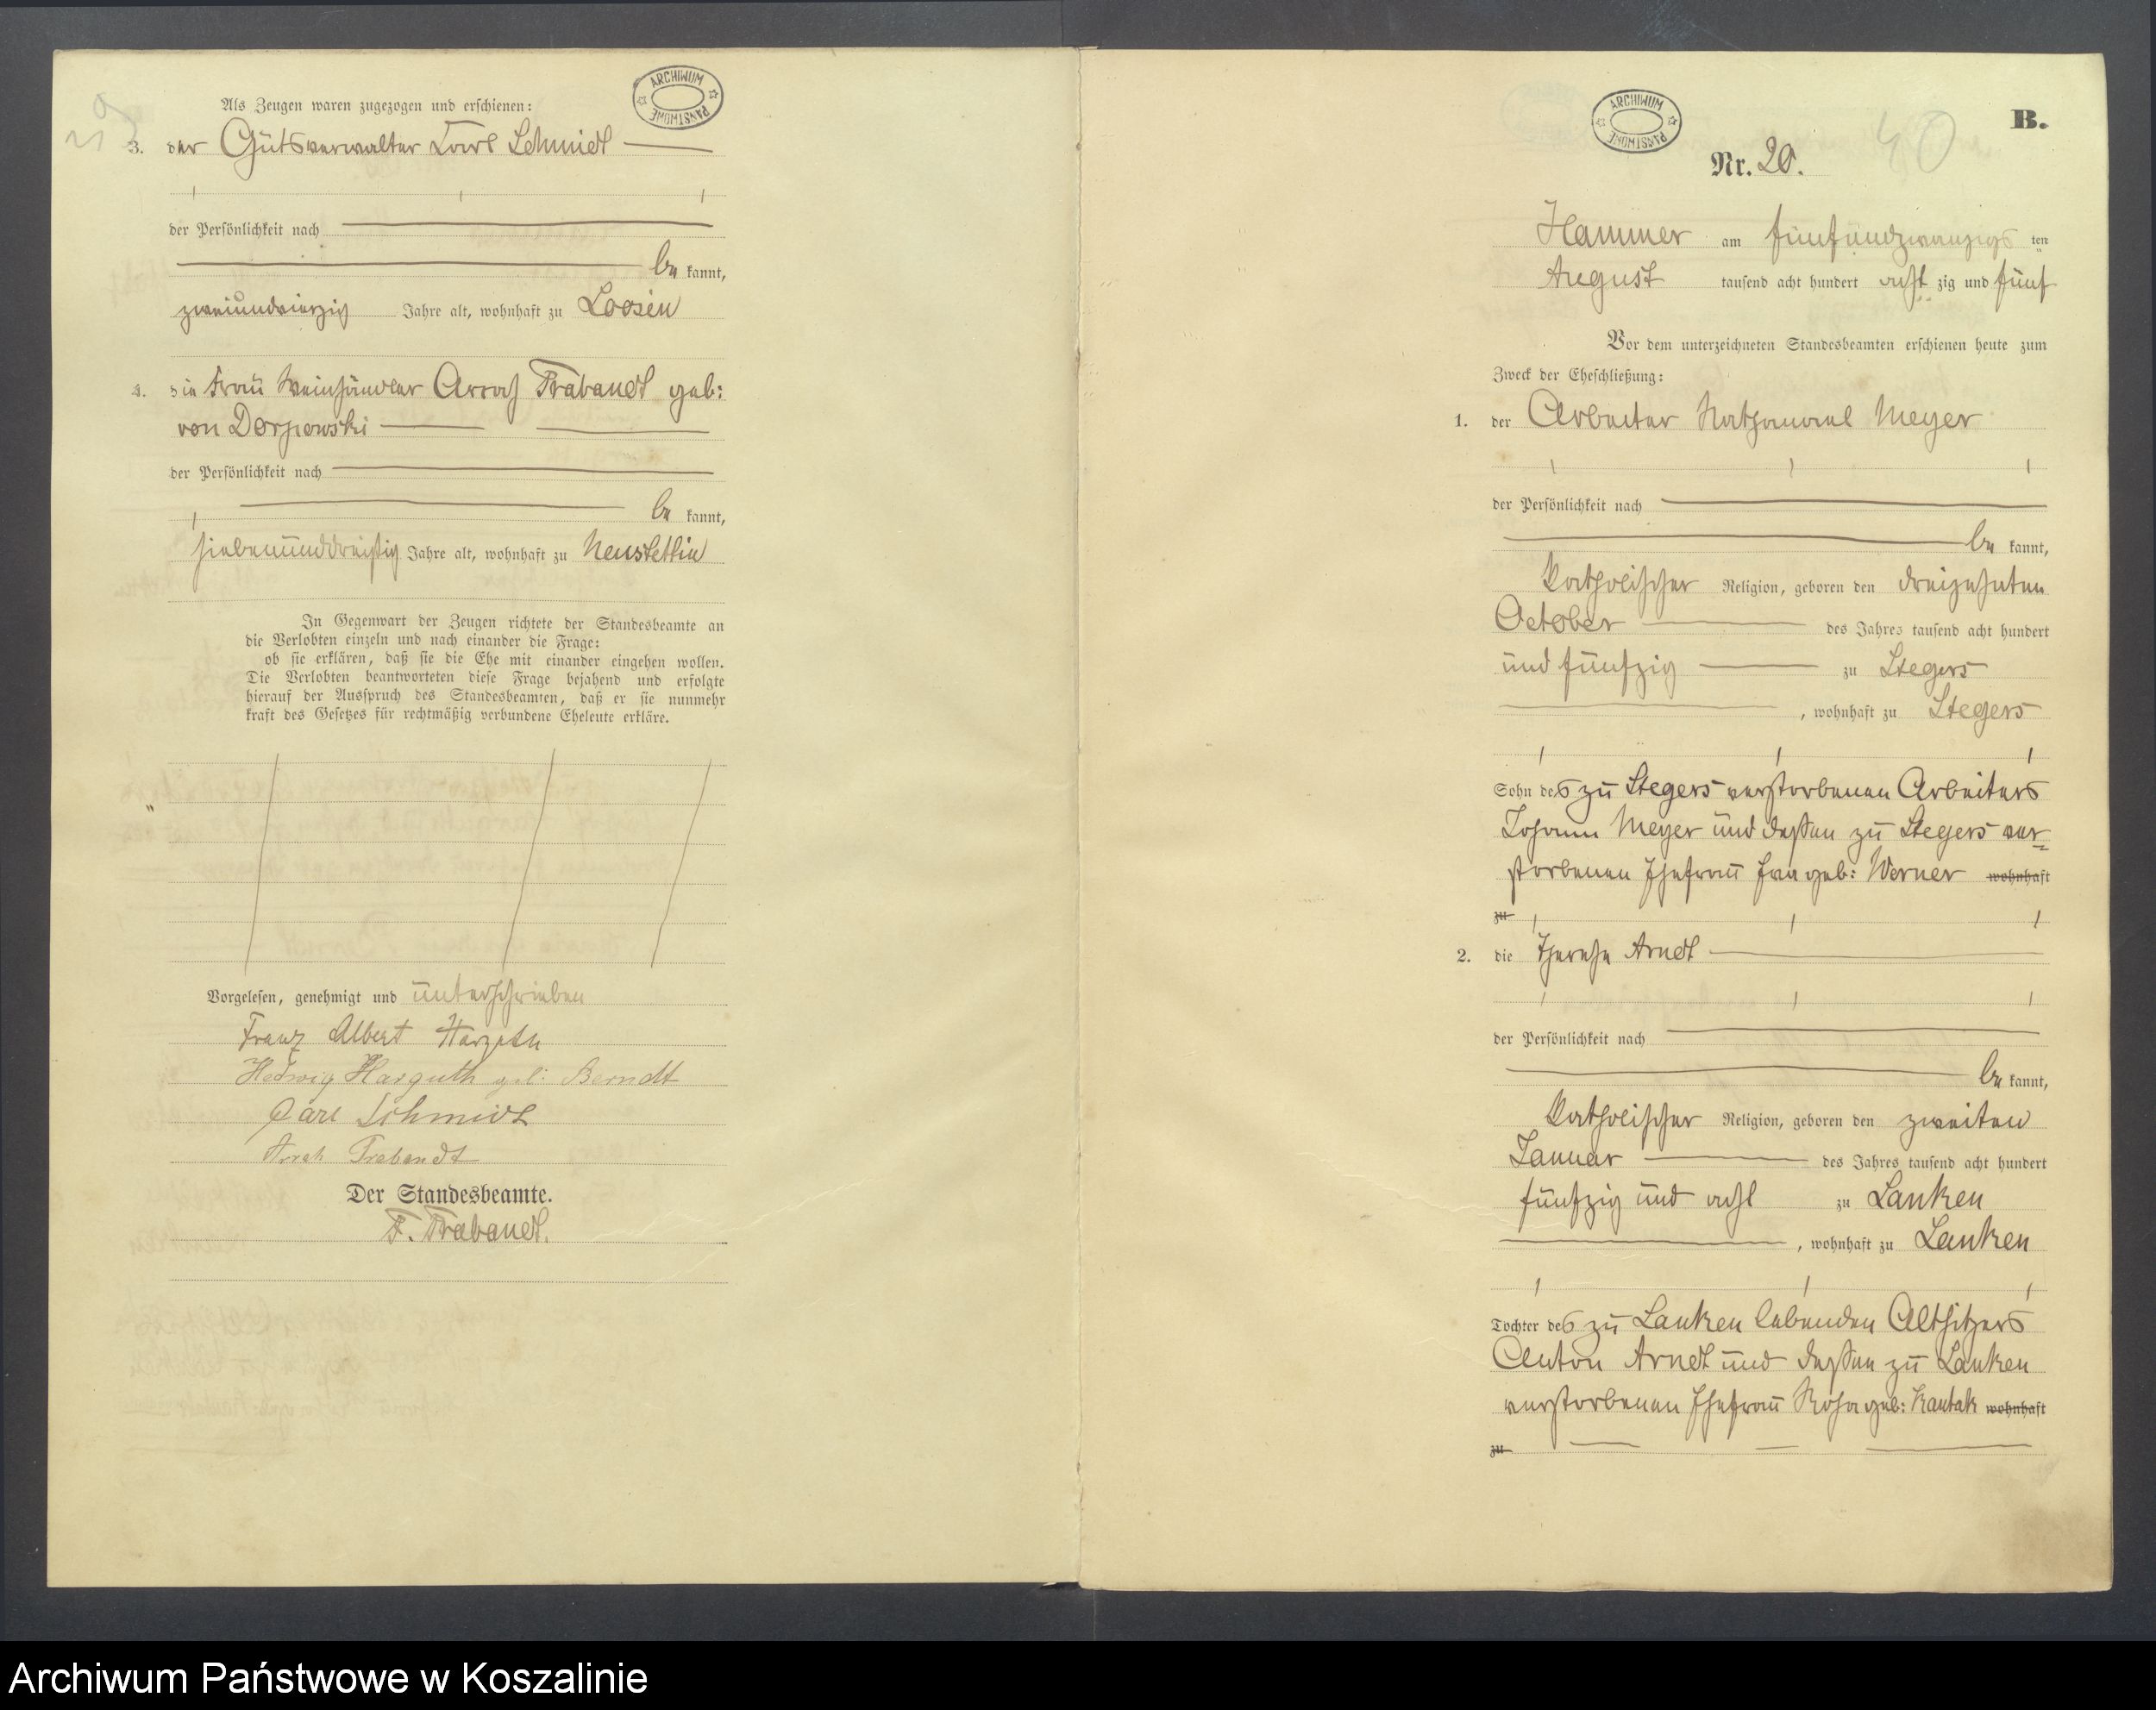 Als Zeugen waren zugezogen und erschienen:
3. der Gutsverwalter Carl Schmidt
der Persönlichkeit nach
be kannt,
zweiundvierzig Jahre alt, wohnhaft zu Loosen
4. die Frau Weinhändler Trabandt geb:
von
der Persönlichkeit nach
be kannt,
siebenunddreißig Jahre alt, wohnhaft zu Neustettin
In Gegenwart der Zeugen richtete der Standesbeamte an
die Verlobten einzeln und nach einander die Frage:
ob sie erklären, daß sie die Ehe mit einander eingehen wollen.
Die Verlobten beantworteten diese Frage bejahend und erfolgte
hierauf der Ausspruch des Standesbeamten, daß er sie nunmehr
kraft des Gesetzes für rechtmäßig verbundene Eheleute erkläre.
Vorgelesen, genehmigt und unterschrieben
Franz Albert
Hedwig Harguth geb: Berndt
Carl Schmidt
Trabandt
Der Standesbeamte.
F. Trabandt.
ARCHIWUM PAŃSTWOWE
ARCHIWUM PAŃSTWOWE
40
B.
Nr. 20.
Hammer am fünfundzwanzigs ten
August tausend acht hundert acht zig und fünf
Vor dem unterzeichneten Standesbeamten erschienen heute zum
Zweck der Eheschließung:
1. der Arbeiter Nathanael Meyer
der Persönlichkeit nach
be kannt,
katholischer Religion, geboren den dreizehnten
October des Jahres tausend acht hundert
und fünfzig zu Stegers
, wohnhaft zu Stegers
Sohn des zu Stegers verstorbenen Arbeiters
Johann Meyer und dessen zu Stegers ver=
storbenen Ehefrau Eva geb: Werner wohnhaft
zu
2. die Therese Arndt
der Persönlichkeit nach
be kannt,
katholischer Religion, geboren den zweiten
Januar des Jahres tausend acht hundert
fünfzig und acht zu Lanken
, wohnhaft zu Lanken
Tochter des zu Lanken lebenden Altsitzers
Anton Arndt und dessen zu Lanken
verstorbenen Ehefrau Rosa geb: Kantak wohnhaft
zu
Archiwum Państwowe w Koszalinie